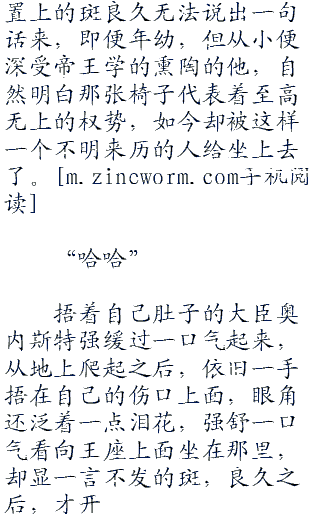 置上的斑良久无法说出一句
话来，即便年幼，但从小便
深受帝王学的熏陶的他，自
然明白那张椅子代表着至高
无上的权势，如今却被这样
一个不明来历的人给坐上去
了。[m.zincworm.com手机阅
读]
“哈哈”
捂着自己肚子的大臣奥
内斯特强缓过一口气起来，
从地上爬起之后，依旧一手
捂在自己的伤口上面，眼角
还泛着一点泪花，强舒一口
气看向王座上面坐在那里，
却显一言不发的斑，良久之
后，才开